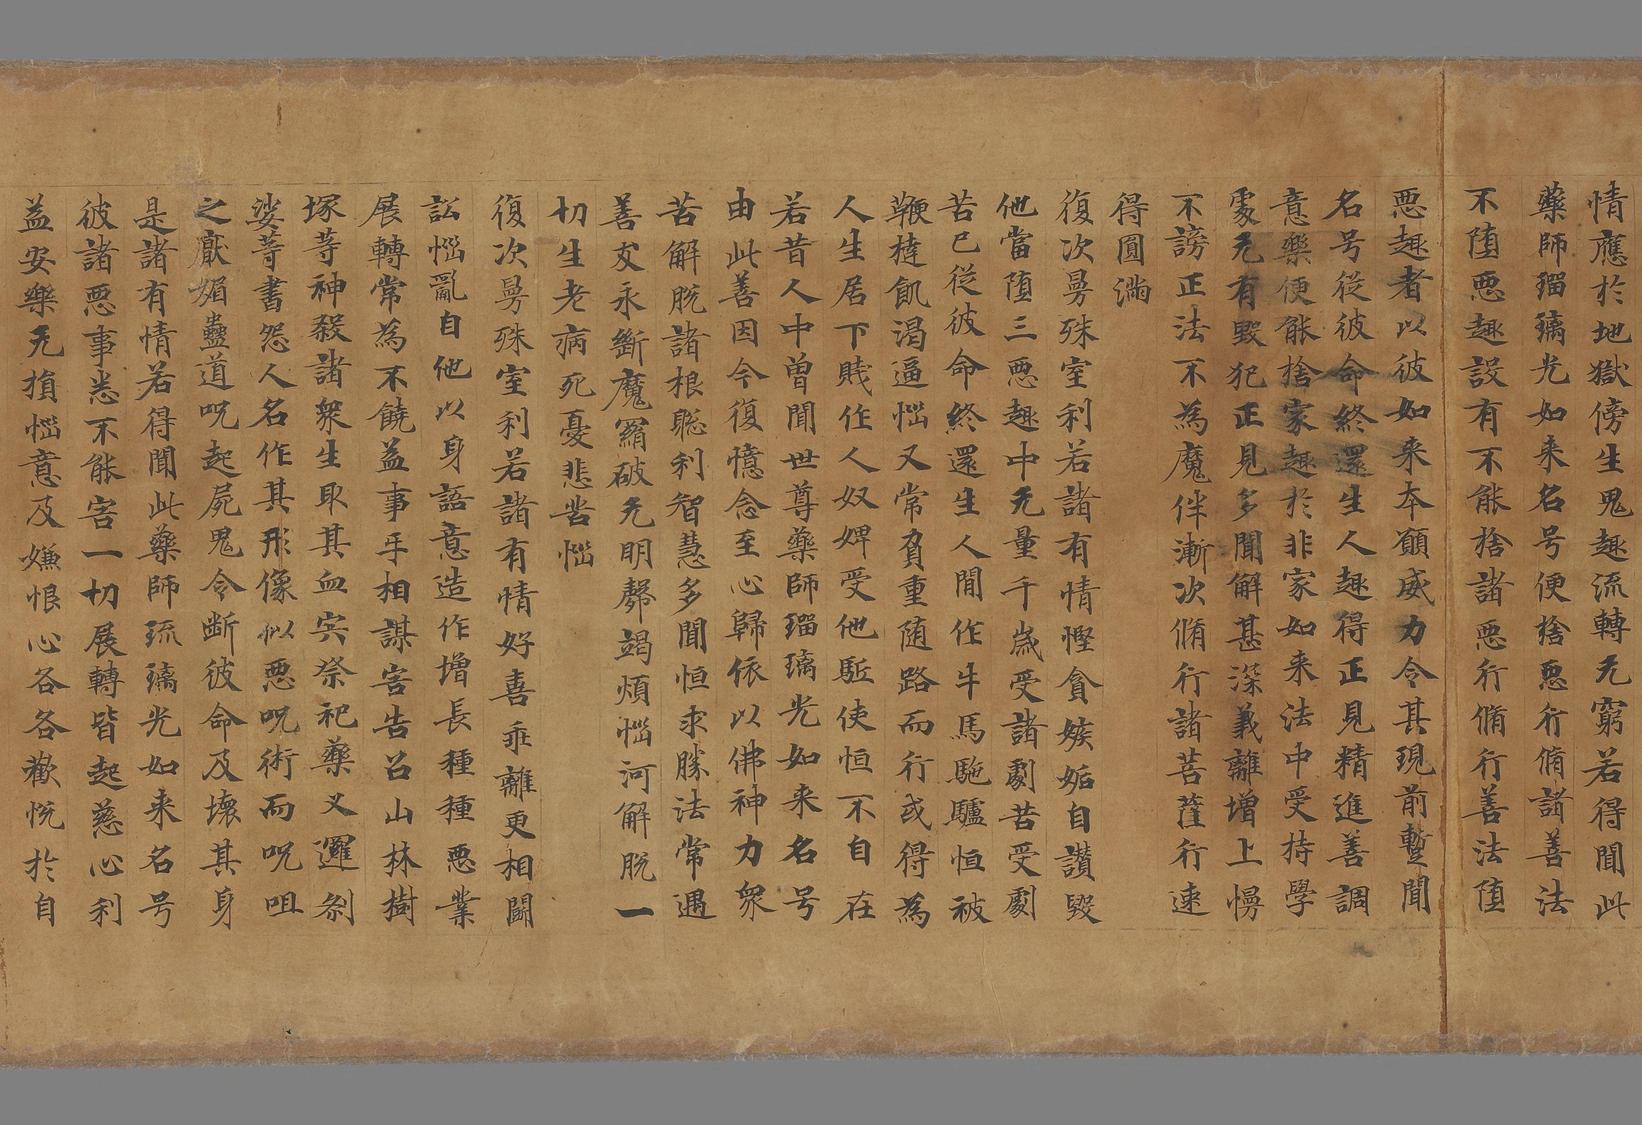 情應於地獄傍生鬼趣流轉无窮若得聞此
藥師瑠璃光如来名号便捨惡行脩諸善法
不堕惡趣設有不能捨諸惡行脩行善法堕
惡趣者以彼如来本願威力令其現前蹔聞
名号従彼命終還生人趣得正見精進善調
意樂便能捨家趣於非家如来法中受持學
處无有毀犯正見多聞解甚深義離增上慢
不謗正法不為魔伴漸次脩行諸菩薩行速
得圓滿
復次曼殊室利若諸有情慳貪嫉妬自讃毀
他當堕三惡趣中无量千歳受諸劇苦受劇
苦已従彼命終還生人間作牛馬駞驢恒被
鞭撻飢渴逼惱又常負重随路而行或得為
人生居下賤作人奴婢受他駈使恒不自在
若昔人中曽聞世尊藥師瑠璃光如来名号
由此善因今復憶念至心歸依以佛神力衆
苦解脱諸根聡利智慧多聞恒求勝法常遇
善友永斷魔羂破无明㲉竭煩惱河解脱一
切生老病死憂悲苦惱
復次曼殊室利若諸有情好喜乖離更相鬪
訟惱亂自他以身語意造作增長種種惡業
展轉常為不饒益事乎相謀害告召山林樹
塚等神殺諸衆生取其血宍祭祀藥叉邏刹
娑等書怨人名作其形像以惡呪術而呪咀
之厭媚蠱道呪起屍鬼令断彼命及壊其身
是諸有情若得聞此藥師琉璃光如来名号
彼諸惡事悉不能害一切展轉皆起慈心利
益安樂无損惱意及嫌恨心各各歡悅於自